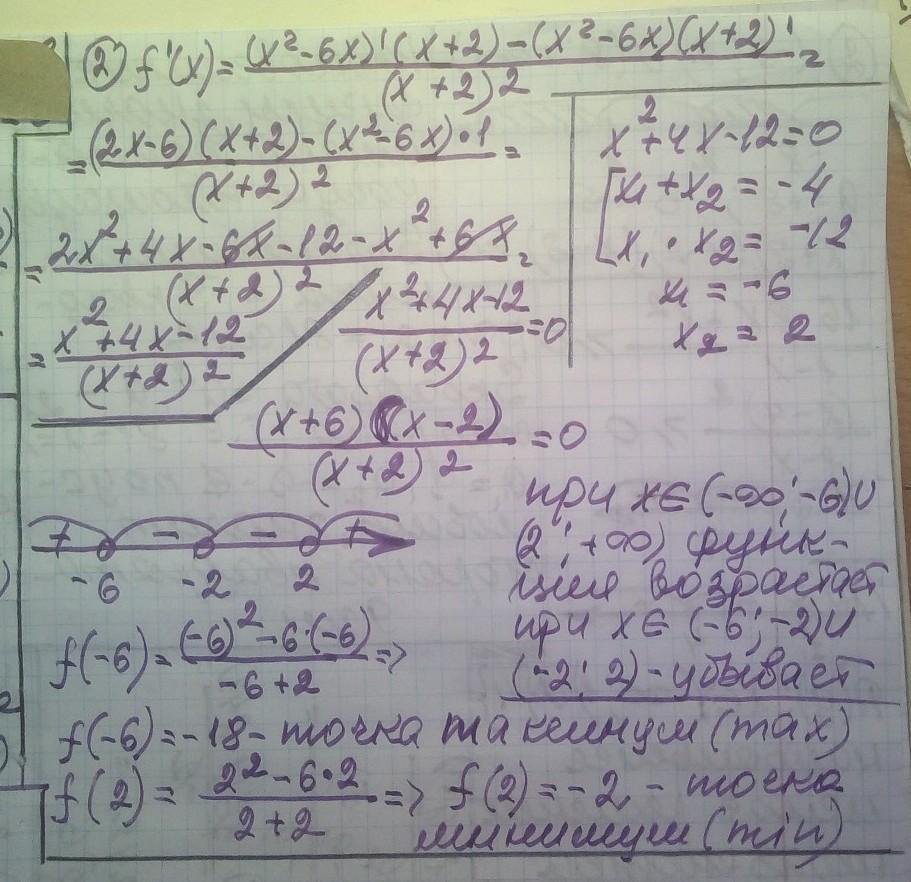 ② f'(x) = (x² - 6x)' (x+2) - (x² - 6x)(x+2)' / (x+2)² =
= (2x-6)(x+2) - (x² - 6x)·1 / (x+2)² =
= 2x² + 4x - 6x - 12 - x² + 6x / (x+2)² =
= x² + 4x - 12 / (x+2)²
x² + 4x - 12 / (x+2)² = 0
x² + 4x - 12 = 0
x₁ + x₂ = -4
x₁ · x₂ = -12
x₁ = -6
x₂ = 2
(x+6)(x-2) / (x+2)² = 0
+ - - +
-6 -2 2
при x∈(-∞;-6)∪
(2;+∞) функ-
ция возрастает
при x∈(-6;-2)∪
(-2;2) - убывает
f(-6) = (-6)² - 6·(-6) / -6+2 =>
f(-6) = -18 - точка максимум (max)
f(2) = 2² - 6·2 / 2+2 => f(2) = -2, - точка
минимум (min)